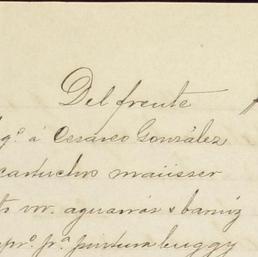 Del frente
g.º á Cesareo González
cartuchos maüsser
vr. aguarrás & barniz
pr.º p.ª pintura buggy